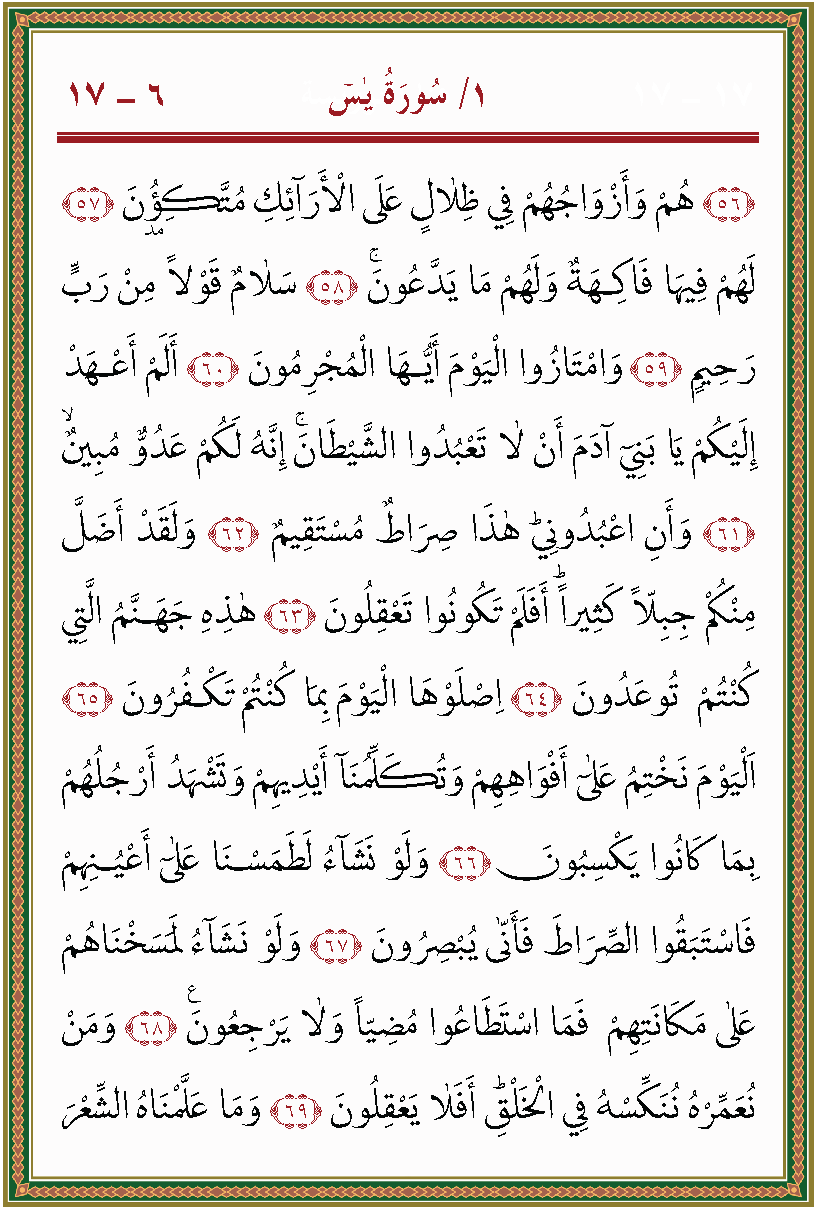 ١/ سُورَةُ يٰسٓ ٦ – ١٧
﴿٥٦﴾ هُمْ وَأَزْوَاجُهُمْ فِي ظِلَالٍ عَلَى الْأَرَآئِكِ مُتَّكِؤُنَ ﴿٥٧﴾
لَهُمْ فِيهَا فَاكِهَةٌ وَلَهُمْ مَا يَدَّعُونَۚ ﴿٥٨﴾ سَلَامٌ قَوْلاً مِنْ رَبٍّ
رَحِيمٍ ﴿٥٩﴾ وَامْتَازُوا الْيَوْمَ أَيُّهَا الْمُجْرِمُونَ ﴿٦٠﴾ أَلَمْ أَعْهَدْ
إِلَيْكُمْ يَا بَنِيٓ آدَمَ أَنْ لَا تَعْبُدُوا الشَّيْطَانَۚ إِنَّهُ لَكُمْ عَدُوٌّ مُبِينٌۙ
﴿٦١﴾ وَأَنِ اعْبُدُونِيۜ هٰذَا صِرَاطٌ مُسْتَقِيمٌ ﴿٦٢﴾ وَلَقَدْ أَضَلَّ
مِنْكُمْ جِبِلّاً كَثِيراًۜ أَفَلَمْ تَكُونُوا تَعْقِلُونَ ﴿٦٣﴾ هٰذِهِ جَهَنَّمُ الَّتِي
كُنْتُمْ تُوعَدُونَ ﴿٦٤﴾ اِصْلَوْهَا الْيَوْمَ بِمَا كُنْتُمْ تَكْفُرُونَ ﴿٦٥﴾
اَلْيَوْمَ نَخْتِمُ عَلٰٓى أَفْوَاهِهِمْ وَتُكَلِّمُنَآ أَيْدِيهِمْ وَتَشْهَدُ أَرْجُلُهُمْ
بِمَا كَانُوا يَكْسِبُونَ ﴿٦٦﴾ وَلَوْ نَشَآءُ لَطَمَسْنَا عَلٰٓى أَعْيُنِهِمْ
فَاسْتَبَقُوا الصِّرَاطَ فَأَنّٰى يُبْصِرُونَ ﴿٦٧﴾ وَلَوْ نَشَآءُ لَمَسَخْنَاهُمْ
عَلٰى مَكَانَتِهِمْ فَمَا اسْتَطَاعُوا مُضِيّاً وَلَا يَرْجِعُونَ ﴿٦٨﴾ وَمَنْ
نُعَمِّرْهُ نُنَكِّسْهُ فِي الْخَلْقِۜ أَفَلَا يَعْقِلُونَ ﴿٦٩﴾ وَمَا عَلَّمْنَاهُ الشِّعْرَ